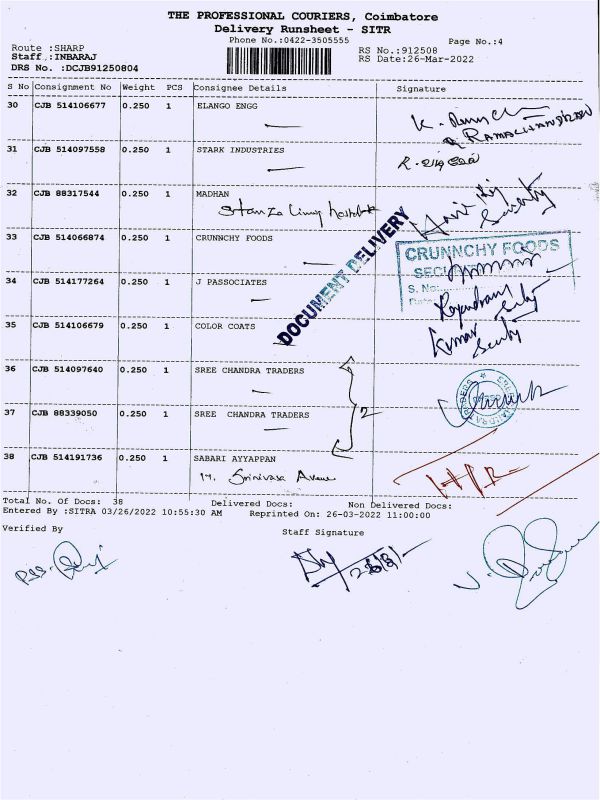 THE PROFESSIONAL COURIERS, Coimbatore
Delivery Runsheet - SITR
Phone No.:0422-3505555
Page No.:4
Route :SHARP
RS No.:912508
Staff :INBARAJ
RS Date:26-Mar-2022
DRS No. :DCJB91250804
S No Consignment No Weight PCS Consignee Details Signature
30 CJB 514106677 0.250 1 ELANGO ENGG
RAMACHANDRAN
31 CJB 514097558 0.250 1 STARK INDUSTRIES
32 CJB 88317544 0.250 1 MADHAN
Security
33 CJB 514066874 0.250 1 CRUNNCHY FOODS
CRUNNCHY FOODS
S. No:
34 CJB 514177264 0.250 1 J PASSOCIATES
DOCUMENT DELIVERY
35 CJB 514106679 0.250 1 COLOR COATS
Kumar
36 CJB 514097640 0.250 1 SREE CHANDRA TRADERS
2
37 CJB 88339050 0.250 1 SREE CHANDRA TRADERS
38 CJB 514191736 0.250 1 SABARI AYYAPPAN
Srinivasa Avenue
Total No. Of Docs: 38 Delivered Docs: Non Delivered Docs:
Entered By :SITRA 03/26/2022 10:55:30 AM Reprinted On: 26-03-2022 11:00:00
Verified By Staff Signature